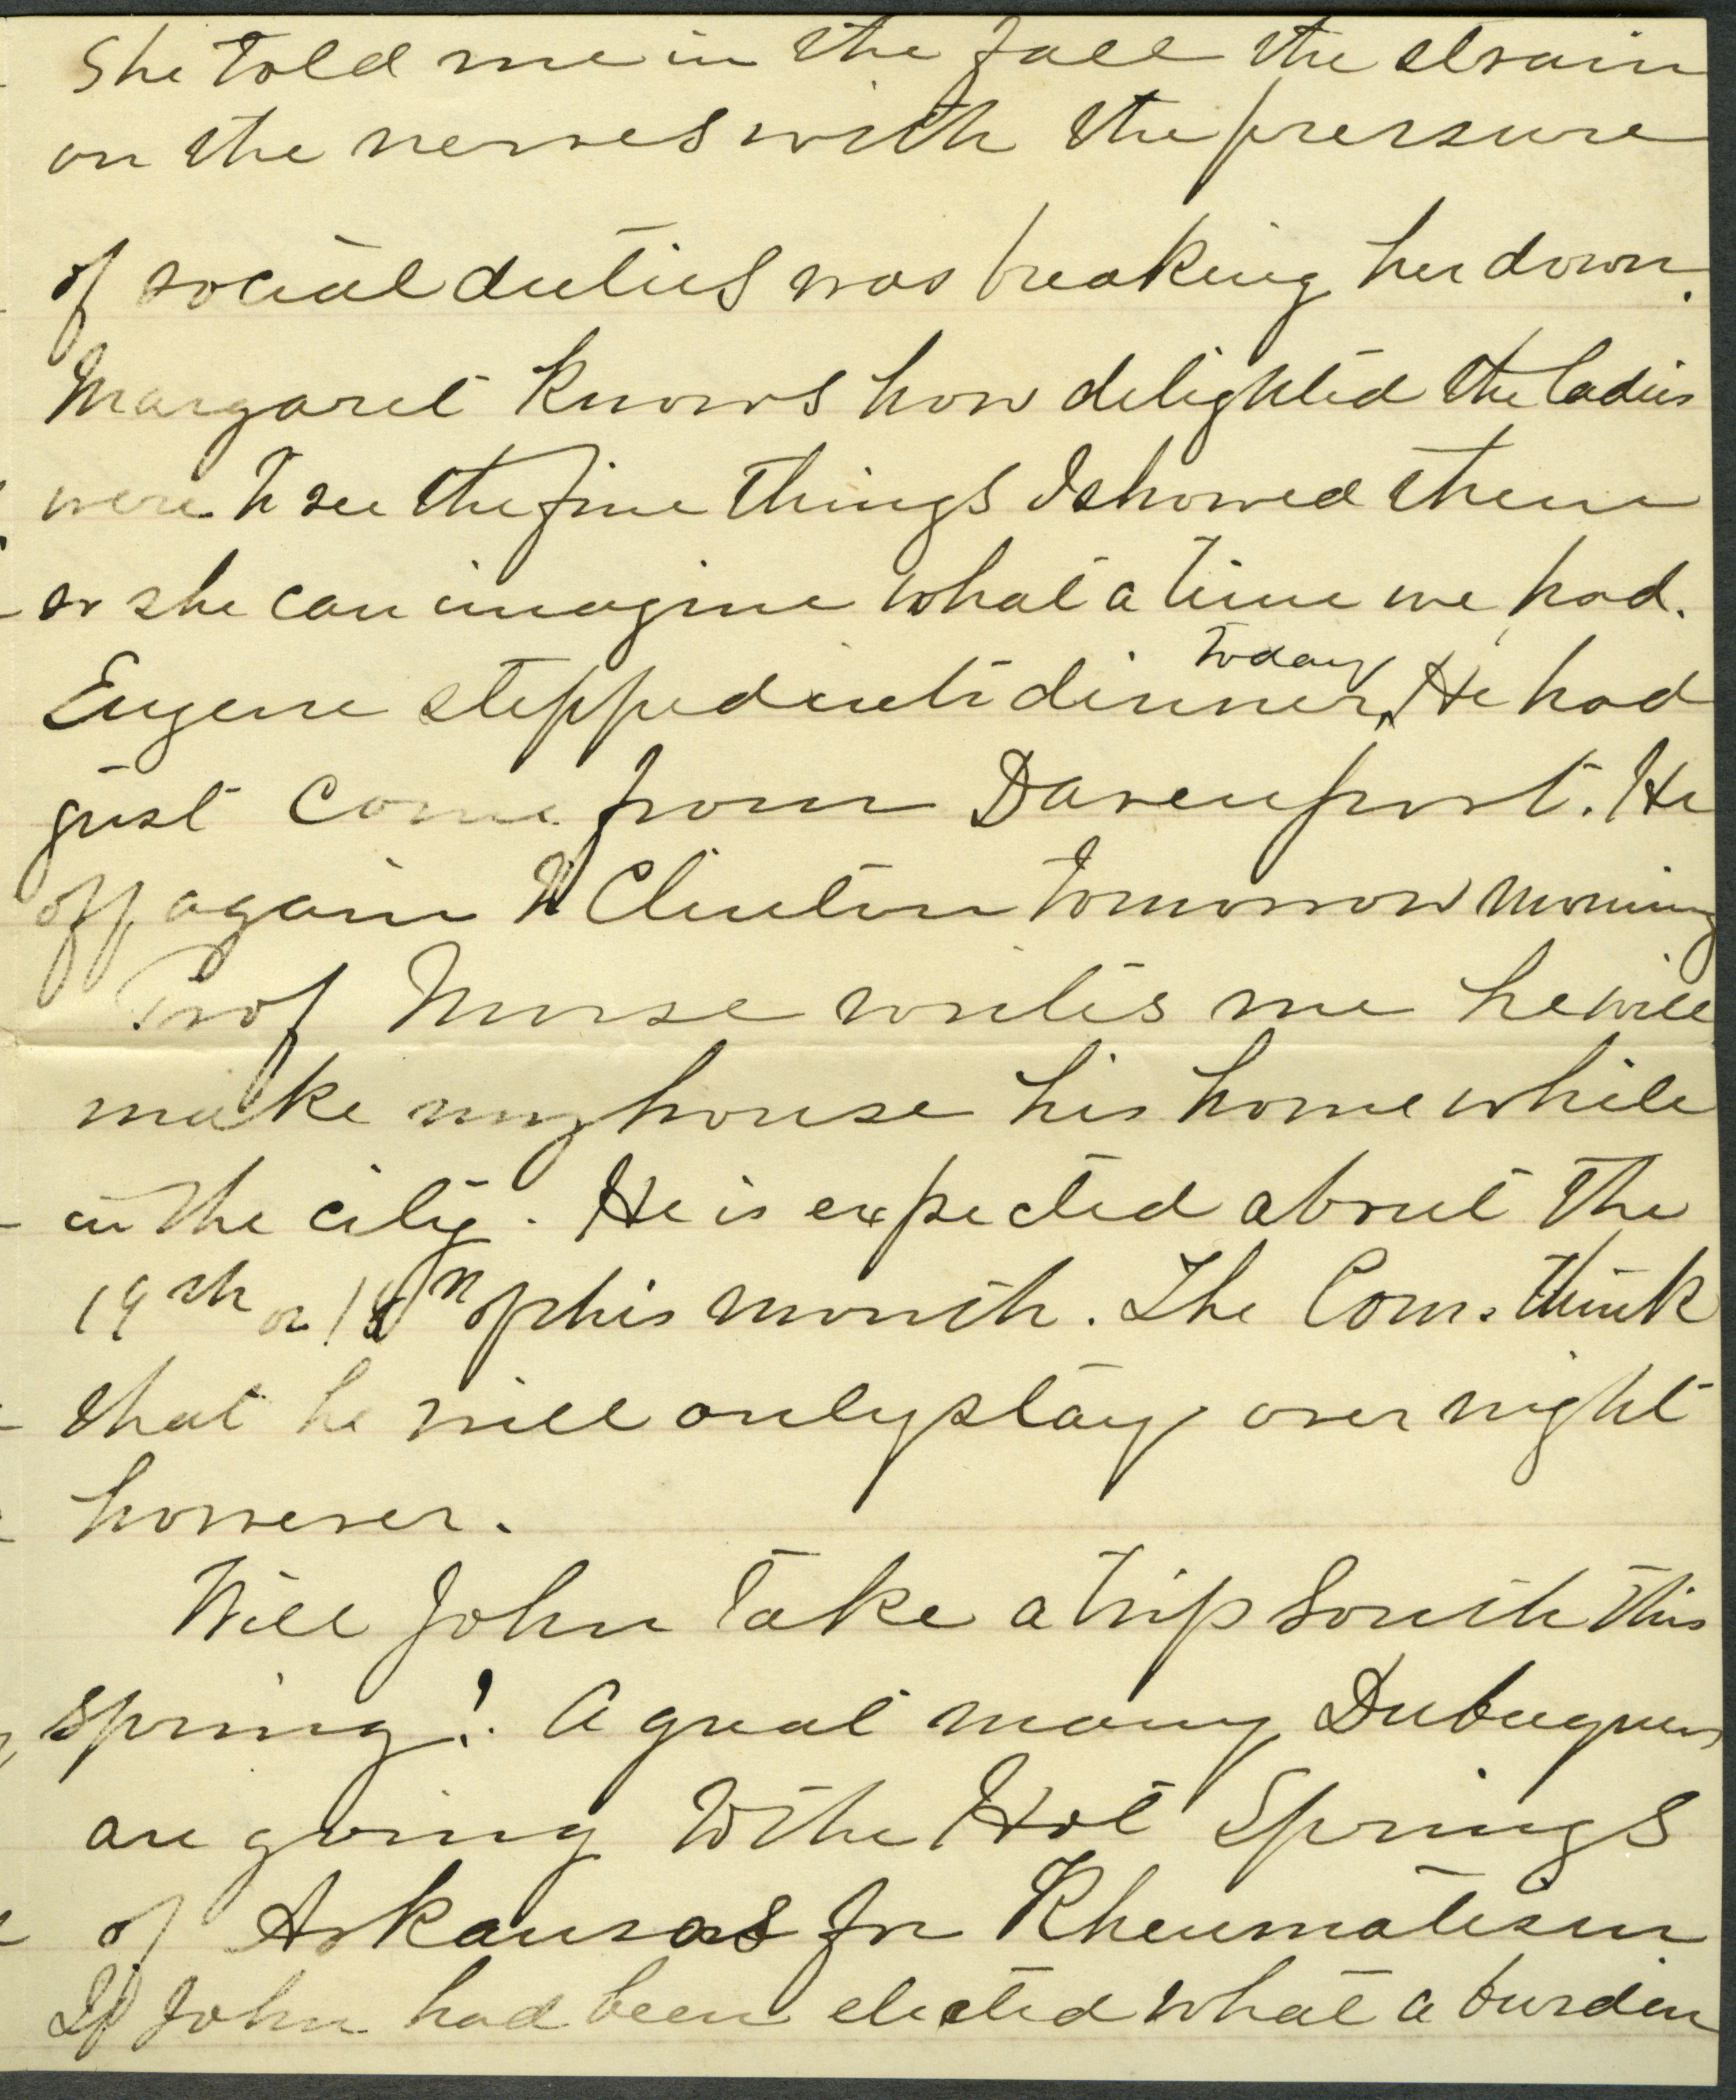 She told me in the fall the strain
on the nerves with the pressure
of social duties was breaking her down.
Margaret knows how delighted the ladies
were to see the fine things I showed them
so she can imagine what a time we had.
Eugene stepped into dinner today. He had
just come from Davenport. He
off again to Clinton tomorrow morning
Prof Morse writes me he will
make my house his home while
in the city. He is expected about the
19th or 18th of this month. The Com. think
that he will only stay over night
however.
Will John take a trip South this
spring! A great many Dubuquers
are going to the Hot Springs
of Arkansas for Rheumatism
If John had been elected what a burden